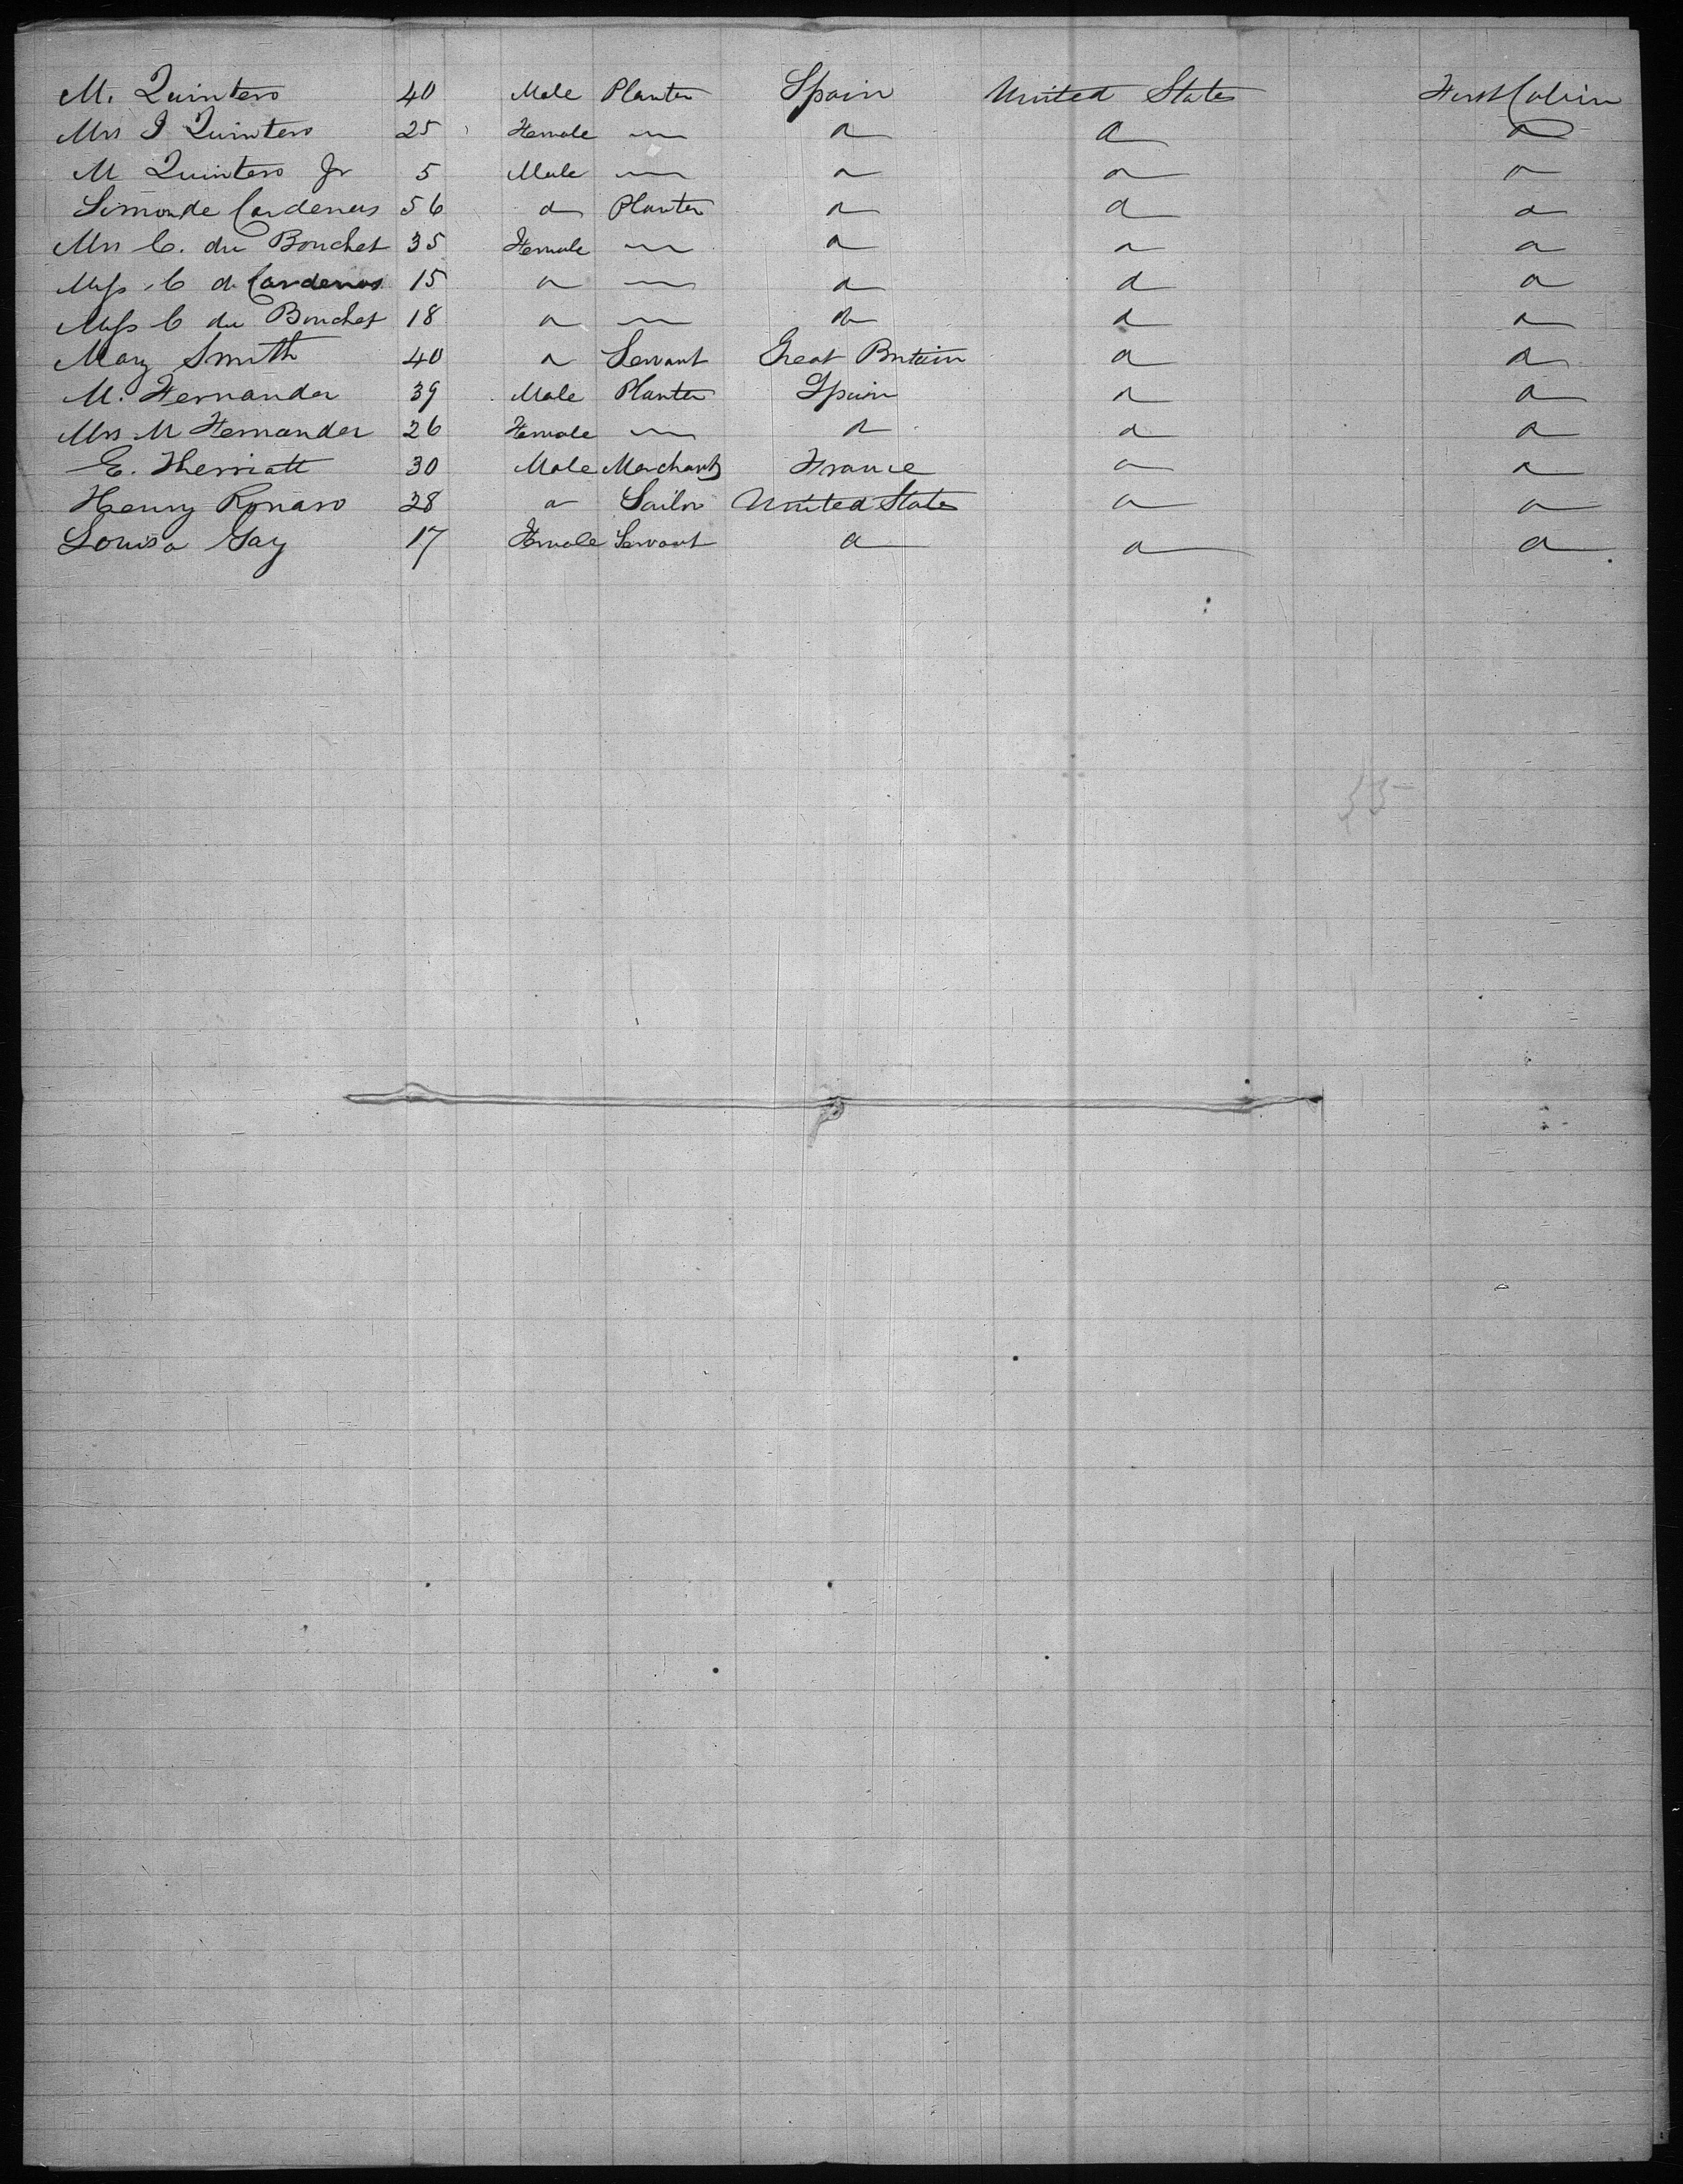 M. Quintero 40 Male Planter Spain United States First Cabin
Mrs J Quintero 25 Female — a a a
M Quintero Jr 5 Male — a a a
Simon de Cardenas 56 a Planter a a a
Mrs C. du Bouchet 35 Female — a a a
Miss C de Cardenas 15 a — a a a
Miss C du Bouchet 18 a — a a a
Mary Smith 40 a Servant Great Britain a a
M. Hernandez 39 Male Planter Spain a a
Mrs M Hernandez 26 Female — a a a
E. Therriatt 30 Male Merchant France a a
Henry Ronaro 28 a Sailor United States a a
Louisa Gay 17 Female Servant a a a